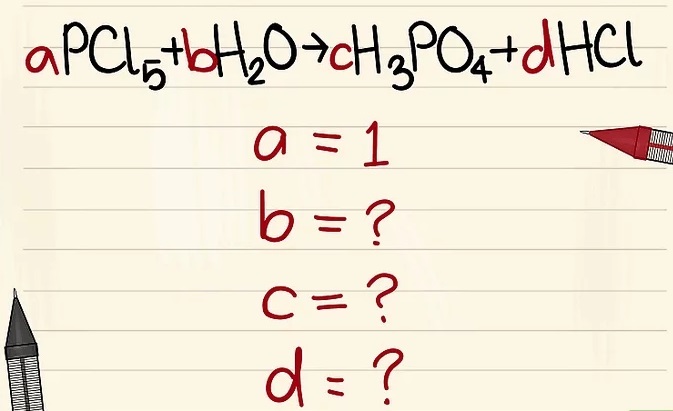 aPCl₅+bH₂O→cH₃PO₄+dHCl
a = 1
b = ?
c = ?
d = ?